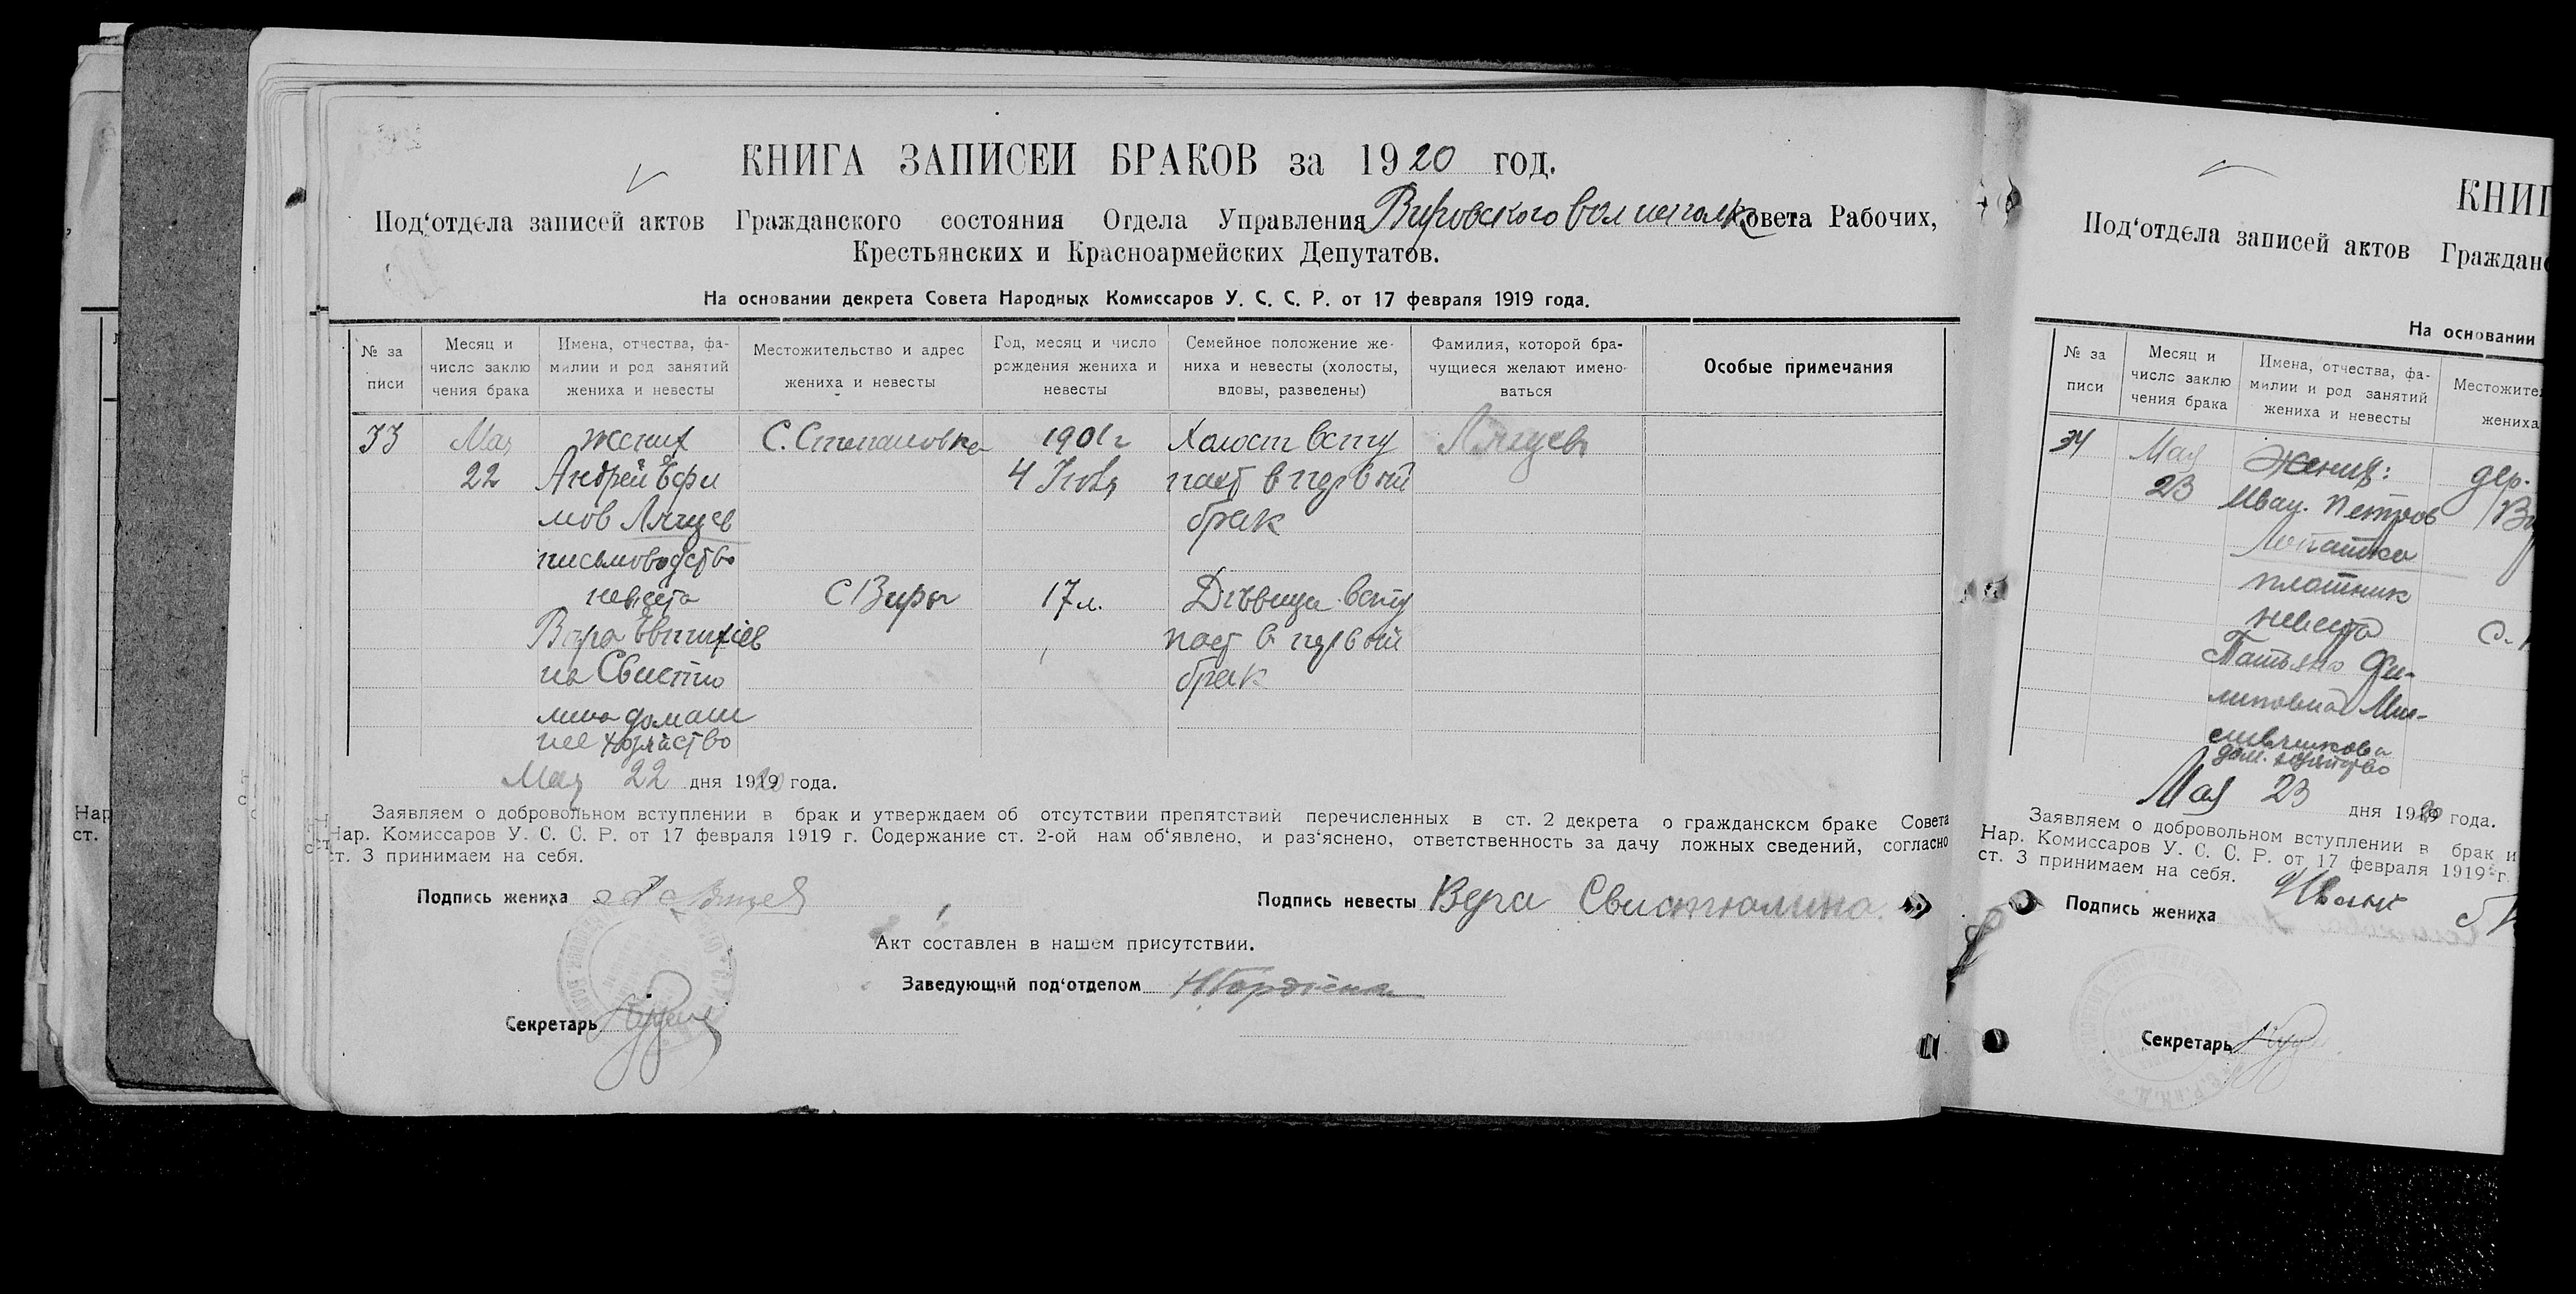 КНИГА ЗАПИСЕЙ БРАКОВ за 1920 год.
Под‘отдела записей актов Гражданского состояния Отдела Управления Вировского волисполк Совета Рабочих,
Крестьянских и Красноармейских Депутатов.
На основании декрета Совета Народных Комиссаров У. С. С. Р. от 17 февраля 1919 года.
№ за писи
Месяц и число заклю чения брака
Имена, отчества, фа- милии и род занятий жениха и невесты
Местожительство и адрес жениха и невесты
Год, месяц и число рождения жениха и невесты
Семейное положение же- ниха и невесты (холосты, вдовы, разведены)
Фамилия, которой бра- чущиеся желают имено- ваться
Особые примечания
33 Мая жених С. Степановка 1901 г Холост всту
22 Андрей Ефи 4 пает в первый
мов брак
письмоводство
невеста С Виры 17 л. Дѣвица всту
Вера пает в первый
на Свистю брак
лина домаш
нее хозяйство
Мая 22 дня 1920 года.
Заявляем о добровольном вступлении в брак и утверждаем об отсутствии препятствий перечисленных в ст. 2 декрета о гражданском браке Совета
Нар. Комиссаров У. С. С. Р. от 17 февраля 1919 г. Содержание ст. 2-ой нам об‘явлено, и раз‘яснено, ответственность за дачу ложных сведений, согласно
ст. 3 принимаем на себя.
Подпись жениха
Подпись невесты Вера Свистюлина.
Акт составлен в нашем присутствии.
Заведующий под‘отделом
Секретарь
КНИГ
Под‘отдела записей актов Гражданс
На основании
№ за писи
Месяц и число заклю чения брака
Имена, отчества, фа- милии и род занятий жениха и невесты
Местожител
жениха
34 Мая Жених: дер.
23 Иван Петров
Лопатка
плотник
невеста С.
Татьяна Фи-
липовна
дом. хозяйство
Мая 23 дня 1920 года.
Заявляем о добровольном вступлении в брак и
Нар. Комиссаров У. С. С. Р. от 17 февраля 1919 г.
ст. 3 принимаем на себя.
Подпись жениха Иван
Секретарь
Нар
ст.